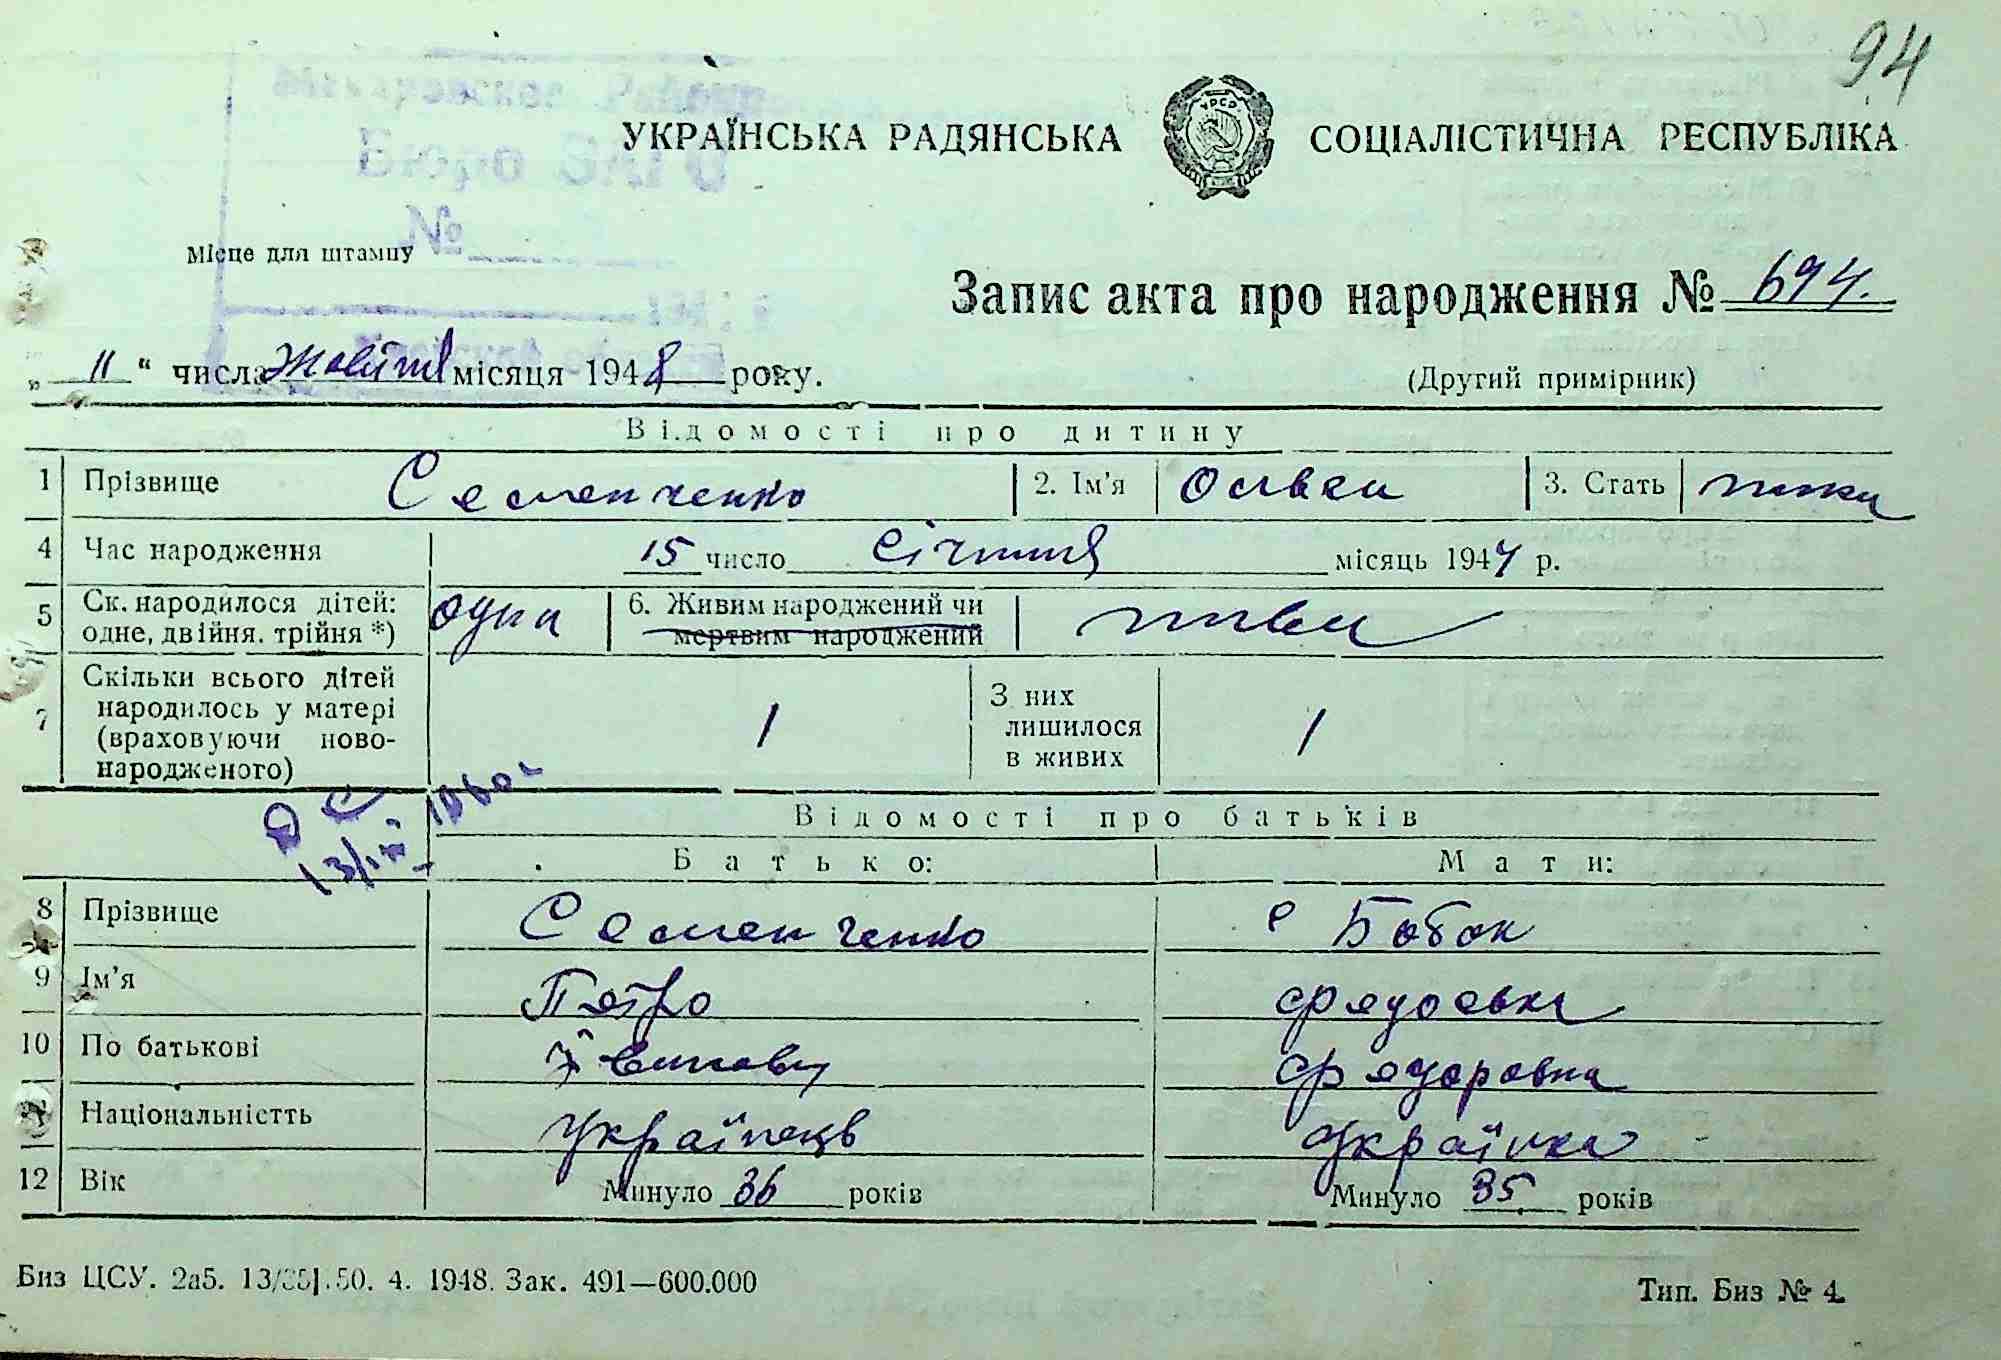 94
Макаровское Районн
Бюро ЗАГС
№
УКРАЇНСЬКА РАДЯНСЬКА СОЦІАЛІСТИЧНА РЕСПУБЛІКА
УРСР
Місце для штампу
Запис акта про народження № 694.
„ 11 “ числа Жовтня місяця 1948 року.
(Другий примірник)
Відомості про дитину
1 Прізвище Семенченко 2. Ім'я 3. Стать
4 Час народження 15 число Січння місяць 1947 р.
5 Ск. народилося дітей: одна 6. Живим народжений чи
одне, двійня. трійня *) мертвим народжений
7 Скільки всього дітей
народилось у матері
(враховуючи ново-
народженого) 1 З них
лишилося
в живих 1
13/III 1960
Відомості про батьків
Батько: Мати:
8 Прізвище Семенченко Бобок
9 Ім'я Петро Федоська
10 По батькові Федоровна
Національністть Українець Українка
12 Вік Минуло 36 років Минуло 35 років
Биз ЦСУ. 2а5. 13/35].50. 4. 1948. Зак. 491—600.000
Тип. Биз № 4.